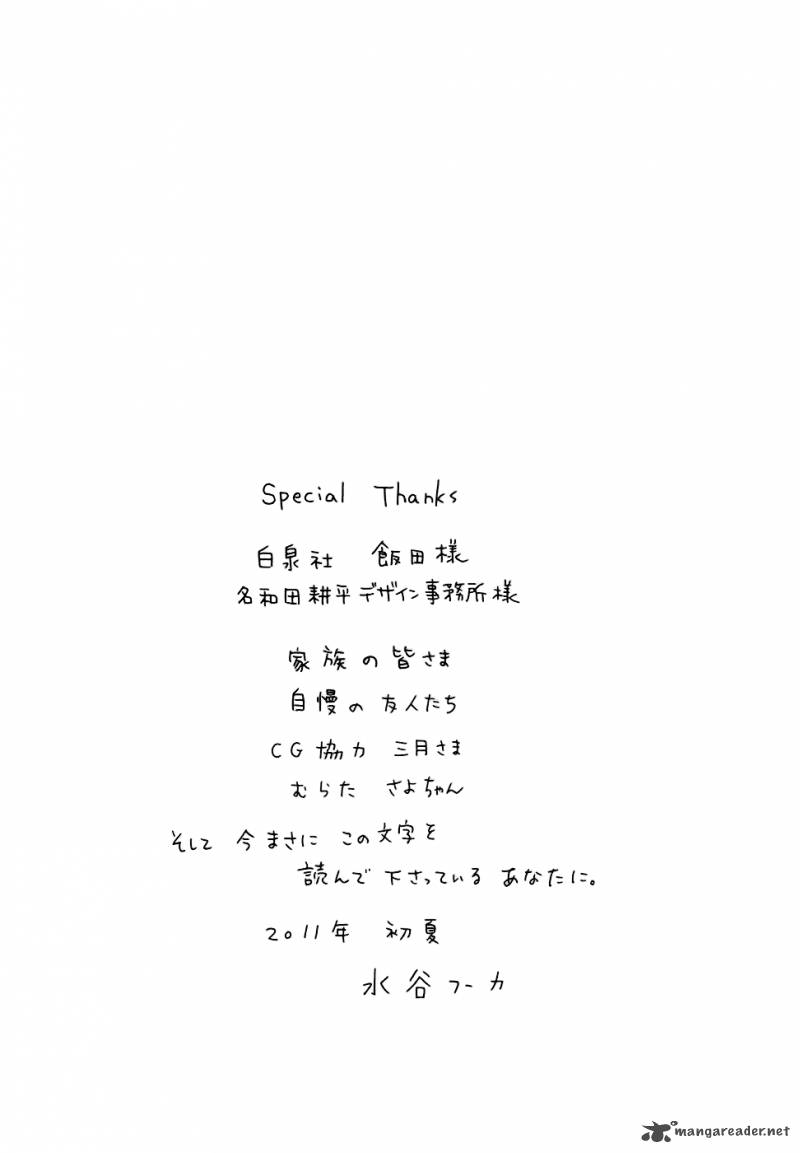 Special Thanks
白泉社 飯田様
名和田耕平デザイン事務所様
家族の皆さま
自慢の友人たち
CG協力 三月さま
むらた さよちゃん
そして 今まさに この文字を
読んで下さっている あなたに。
2011年 初夏
水谷フーカ
mangareader.net